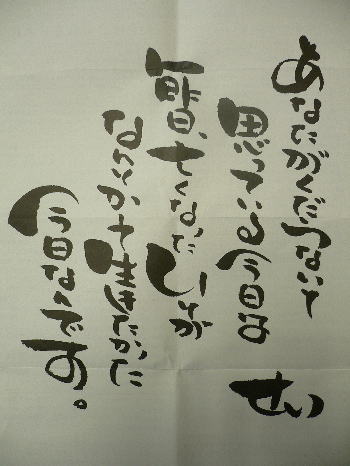 あなたがくだらないと
思っている今日は
一昨日、亡くなった人が
なんとかして生きたかった
今日なんです。
せい